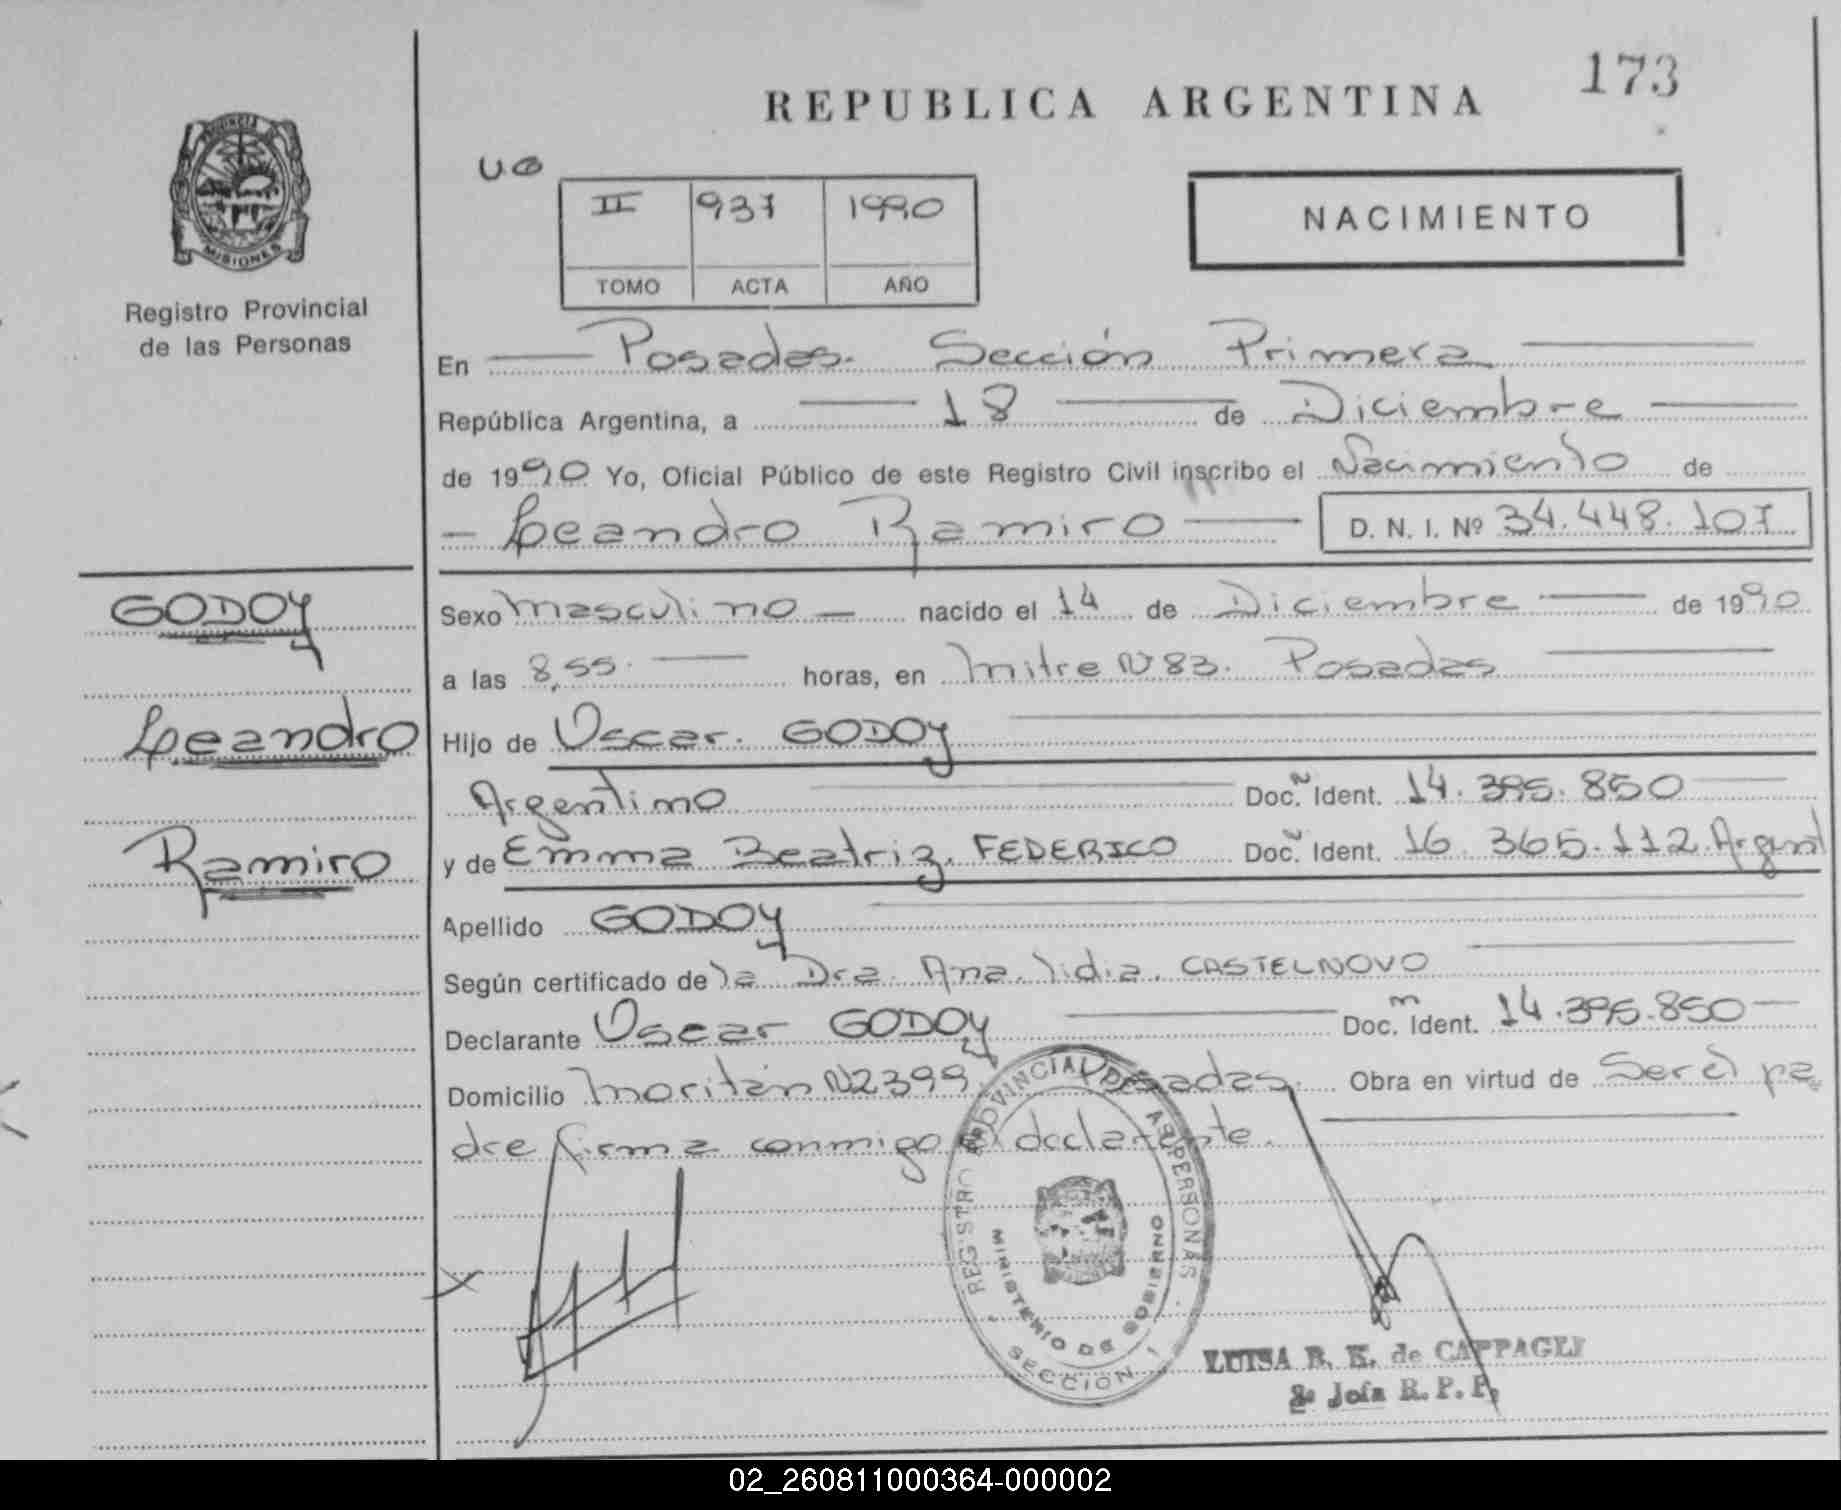 173
REPUBLICA ARGENTINA
PROVINCIA DE
MISIONES
Registro Provincial
de las Personas
II 937 1990
TOMO ACTA AÑO
NACIMIENTO
En Posadas. Sección Primera
República Argentina, a 18 de Diciembre
de 1990 Yo, Oficial Público de este Registro Civil inscribo el Nacimiento de
Leandro Ramiro D. N. I. Nº 34.448.107
GODOY
Leandro
Ramiro
Sexo masculino nacido el 14 de Diciembre de 1990
a las 8,55. horas, en Mitre Nº 83. Posadas
Hijo de Oscar. GODOY
Argentino Doc. Ident. 14.395.850
y de Emma Beatriz. FEDERICO Doc. Ident. 16.365.112. Argent
Apellido GODOY
Según certificado de la Dra. Ana. Lidia. CASTELNOVO
Declarante Oscar GODOY Doc. Ident. 14.395.850
Domicilio Nº 2399. Posadas. Obra en virtud de Ser el pa
dre firma conmigo el declarante.
REGISTRO PROVINCIAL DE LAS PERSONAS
MINISTERIO DE GOBIERNO
SECCION 1
LUISA R. K. de CAPPAGLI
2ª Jefa R. P. P.
02_260811000364-000002